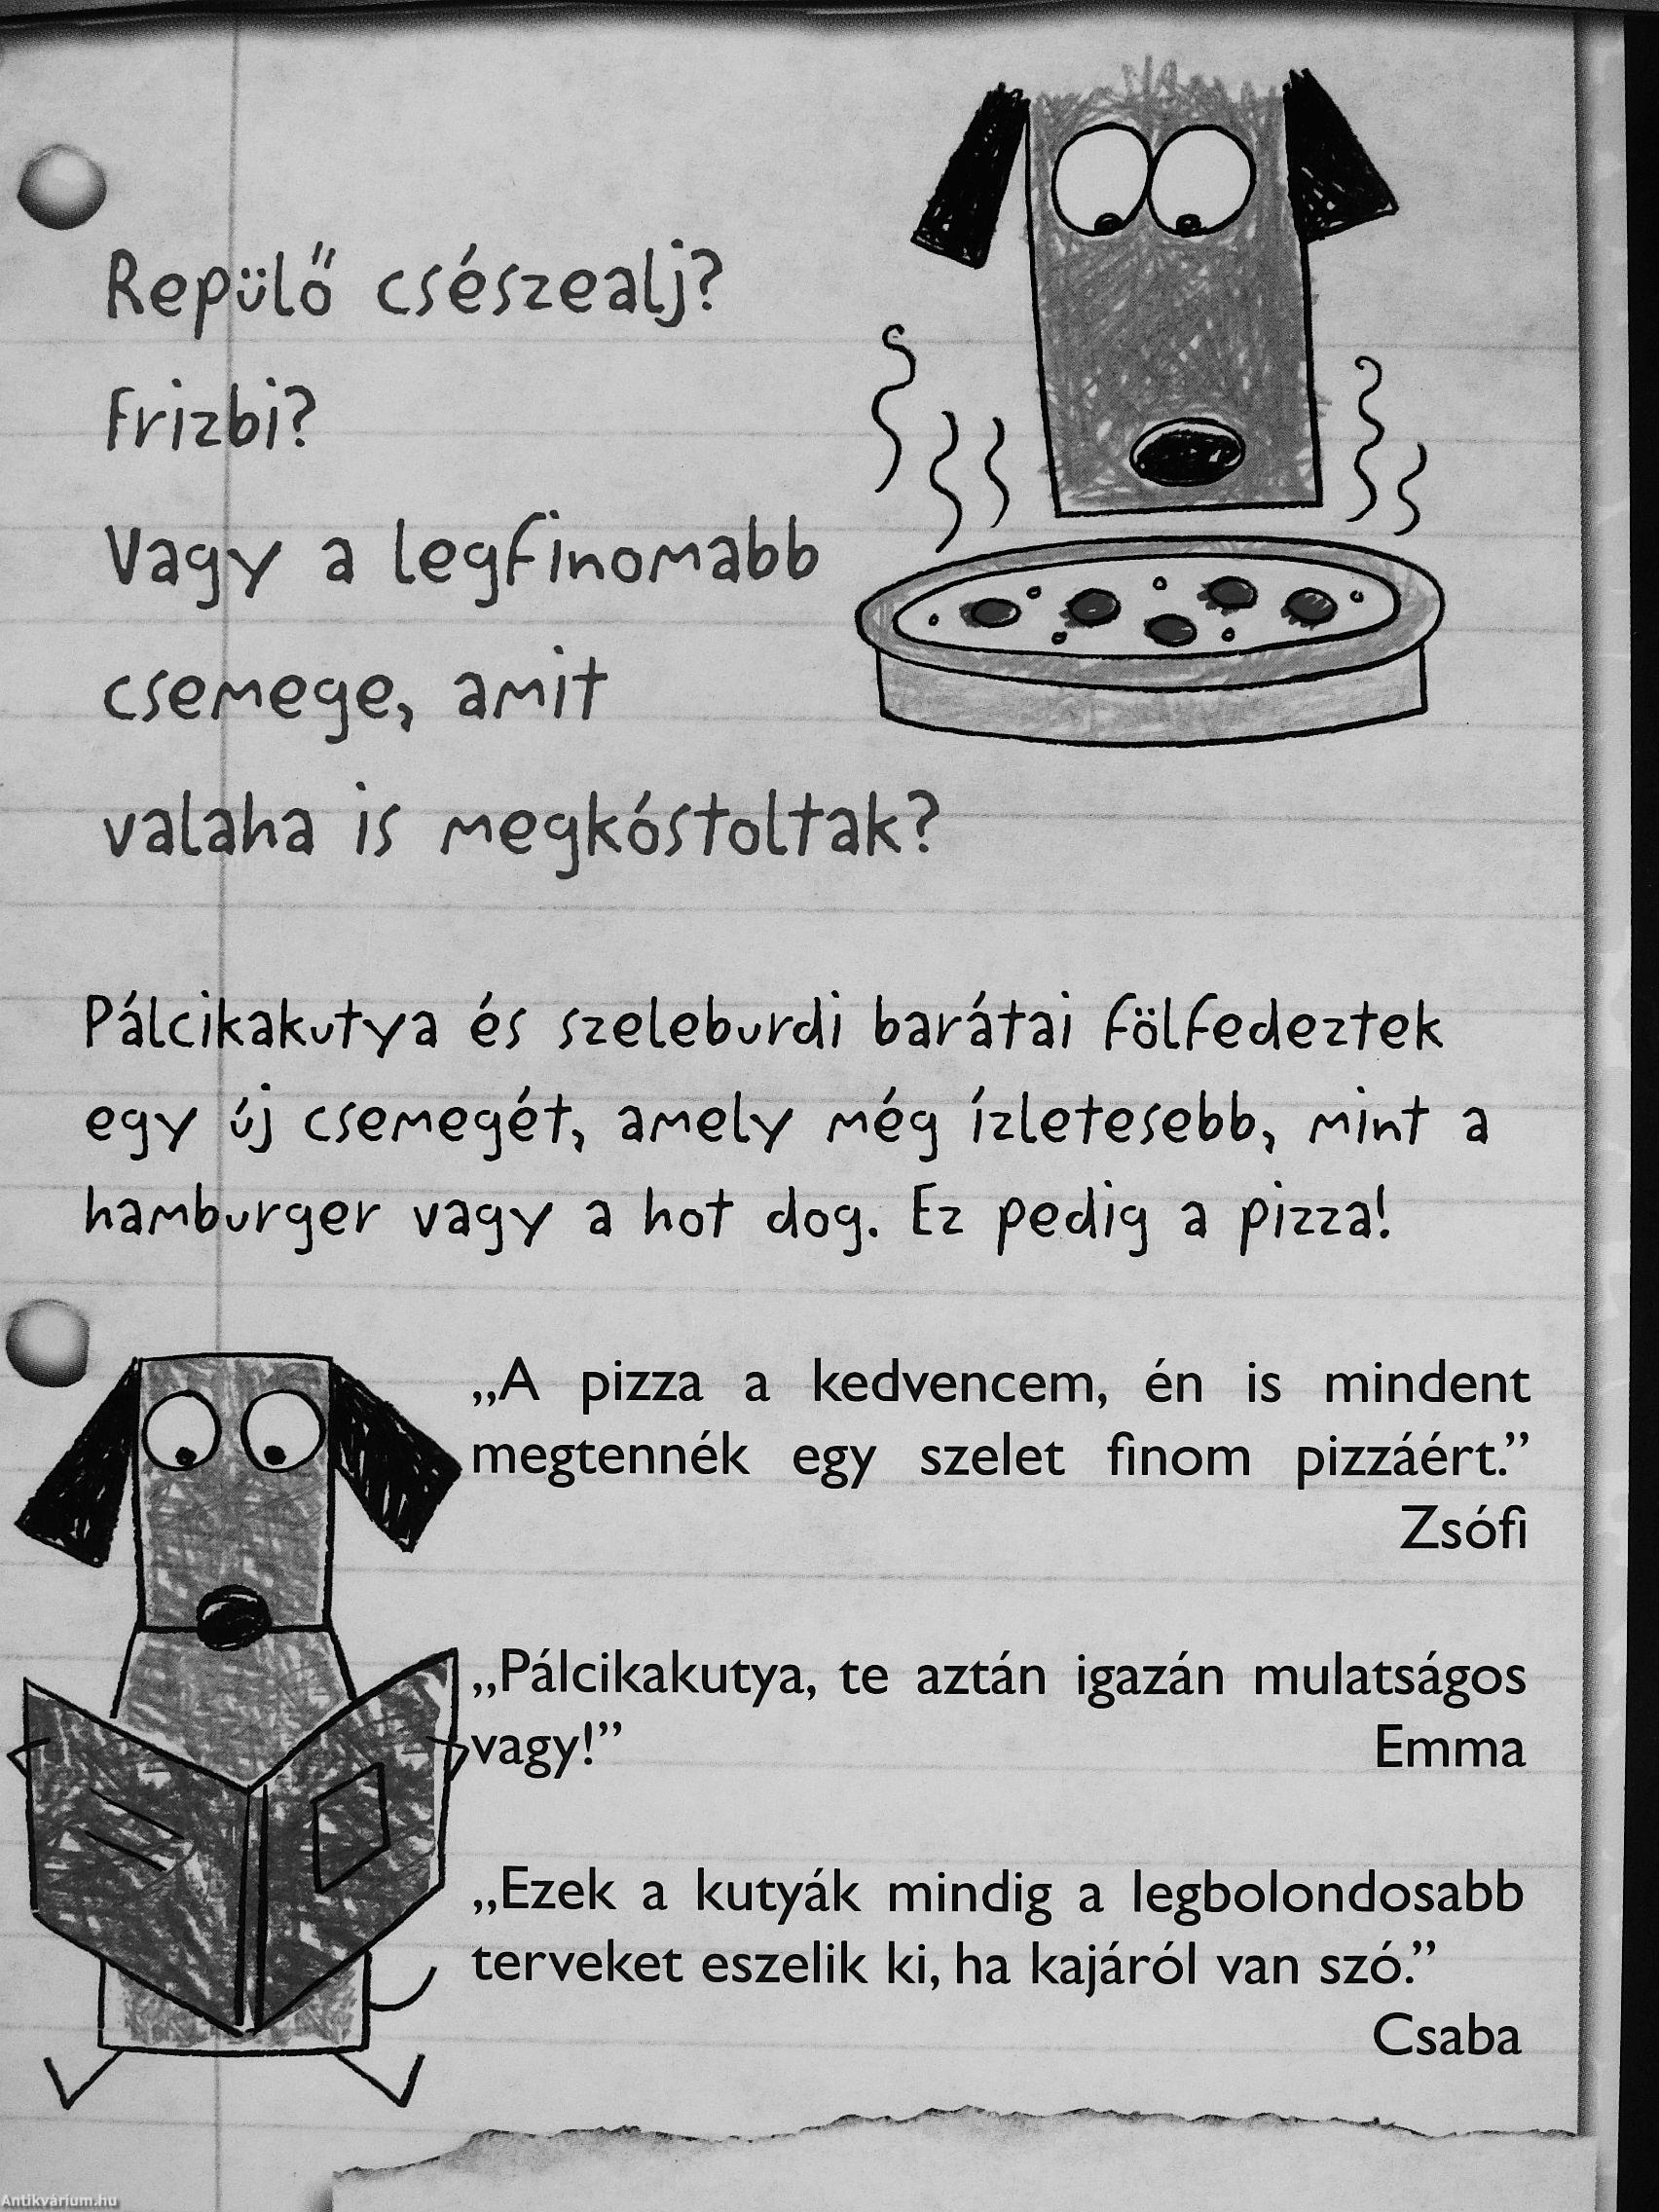 Repülő csészealj?
Frizbi?
Vagy a legfinomabb
csemege, amit
valaha is megkóstoltak?
Pálcikakutya és szeleburdi barátai fölfedeztek
egy új csemegét, amely még ízletesebb, mint a
hamburger vagy a hot dog. Ez pedig a pizza!
„A pizza a kedvencem, én is mindent
megtennék egy szelet finom pizzáért.”
Zsófi
„Pálcikakutya, te aztán igazán mulatságos
vagy!” Emma
„Ezek a kutyák mindig a legbolondosabb
terveket eszelik ki, ha kajáról van szó.”
Csaba
Antikvárium.hu